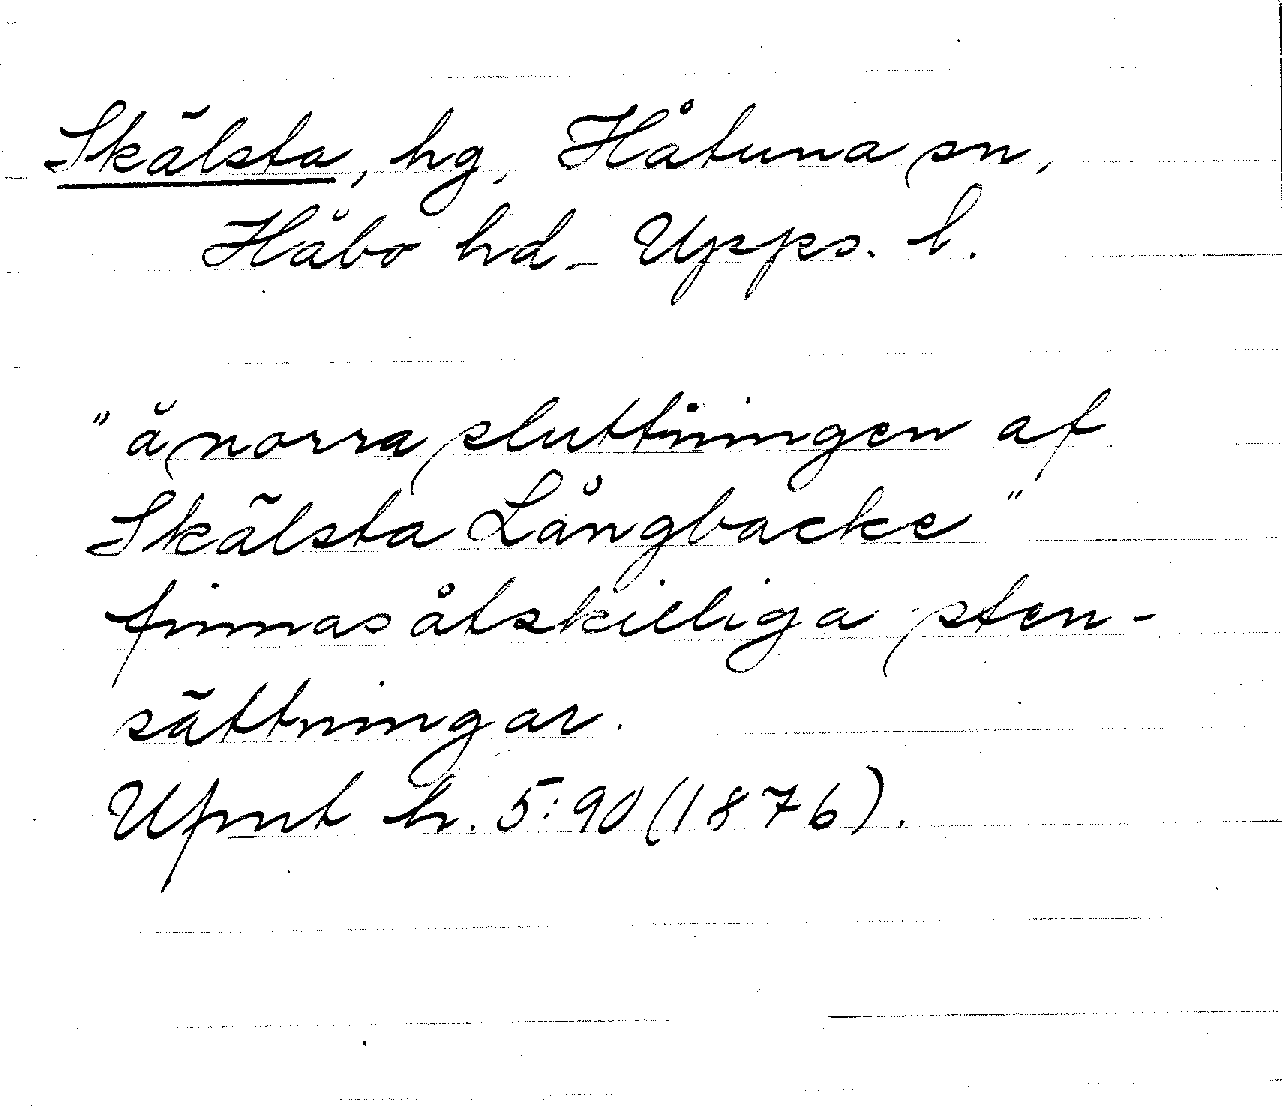 Skälsta, hg, Håtuna sn,
Håbo hd – Upps. l.
"å norra sluttningen af
Skälsta Långbacke"
finnas åtskilliga sten-
sättningar.
Ufmt h. 5:90 (1876).